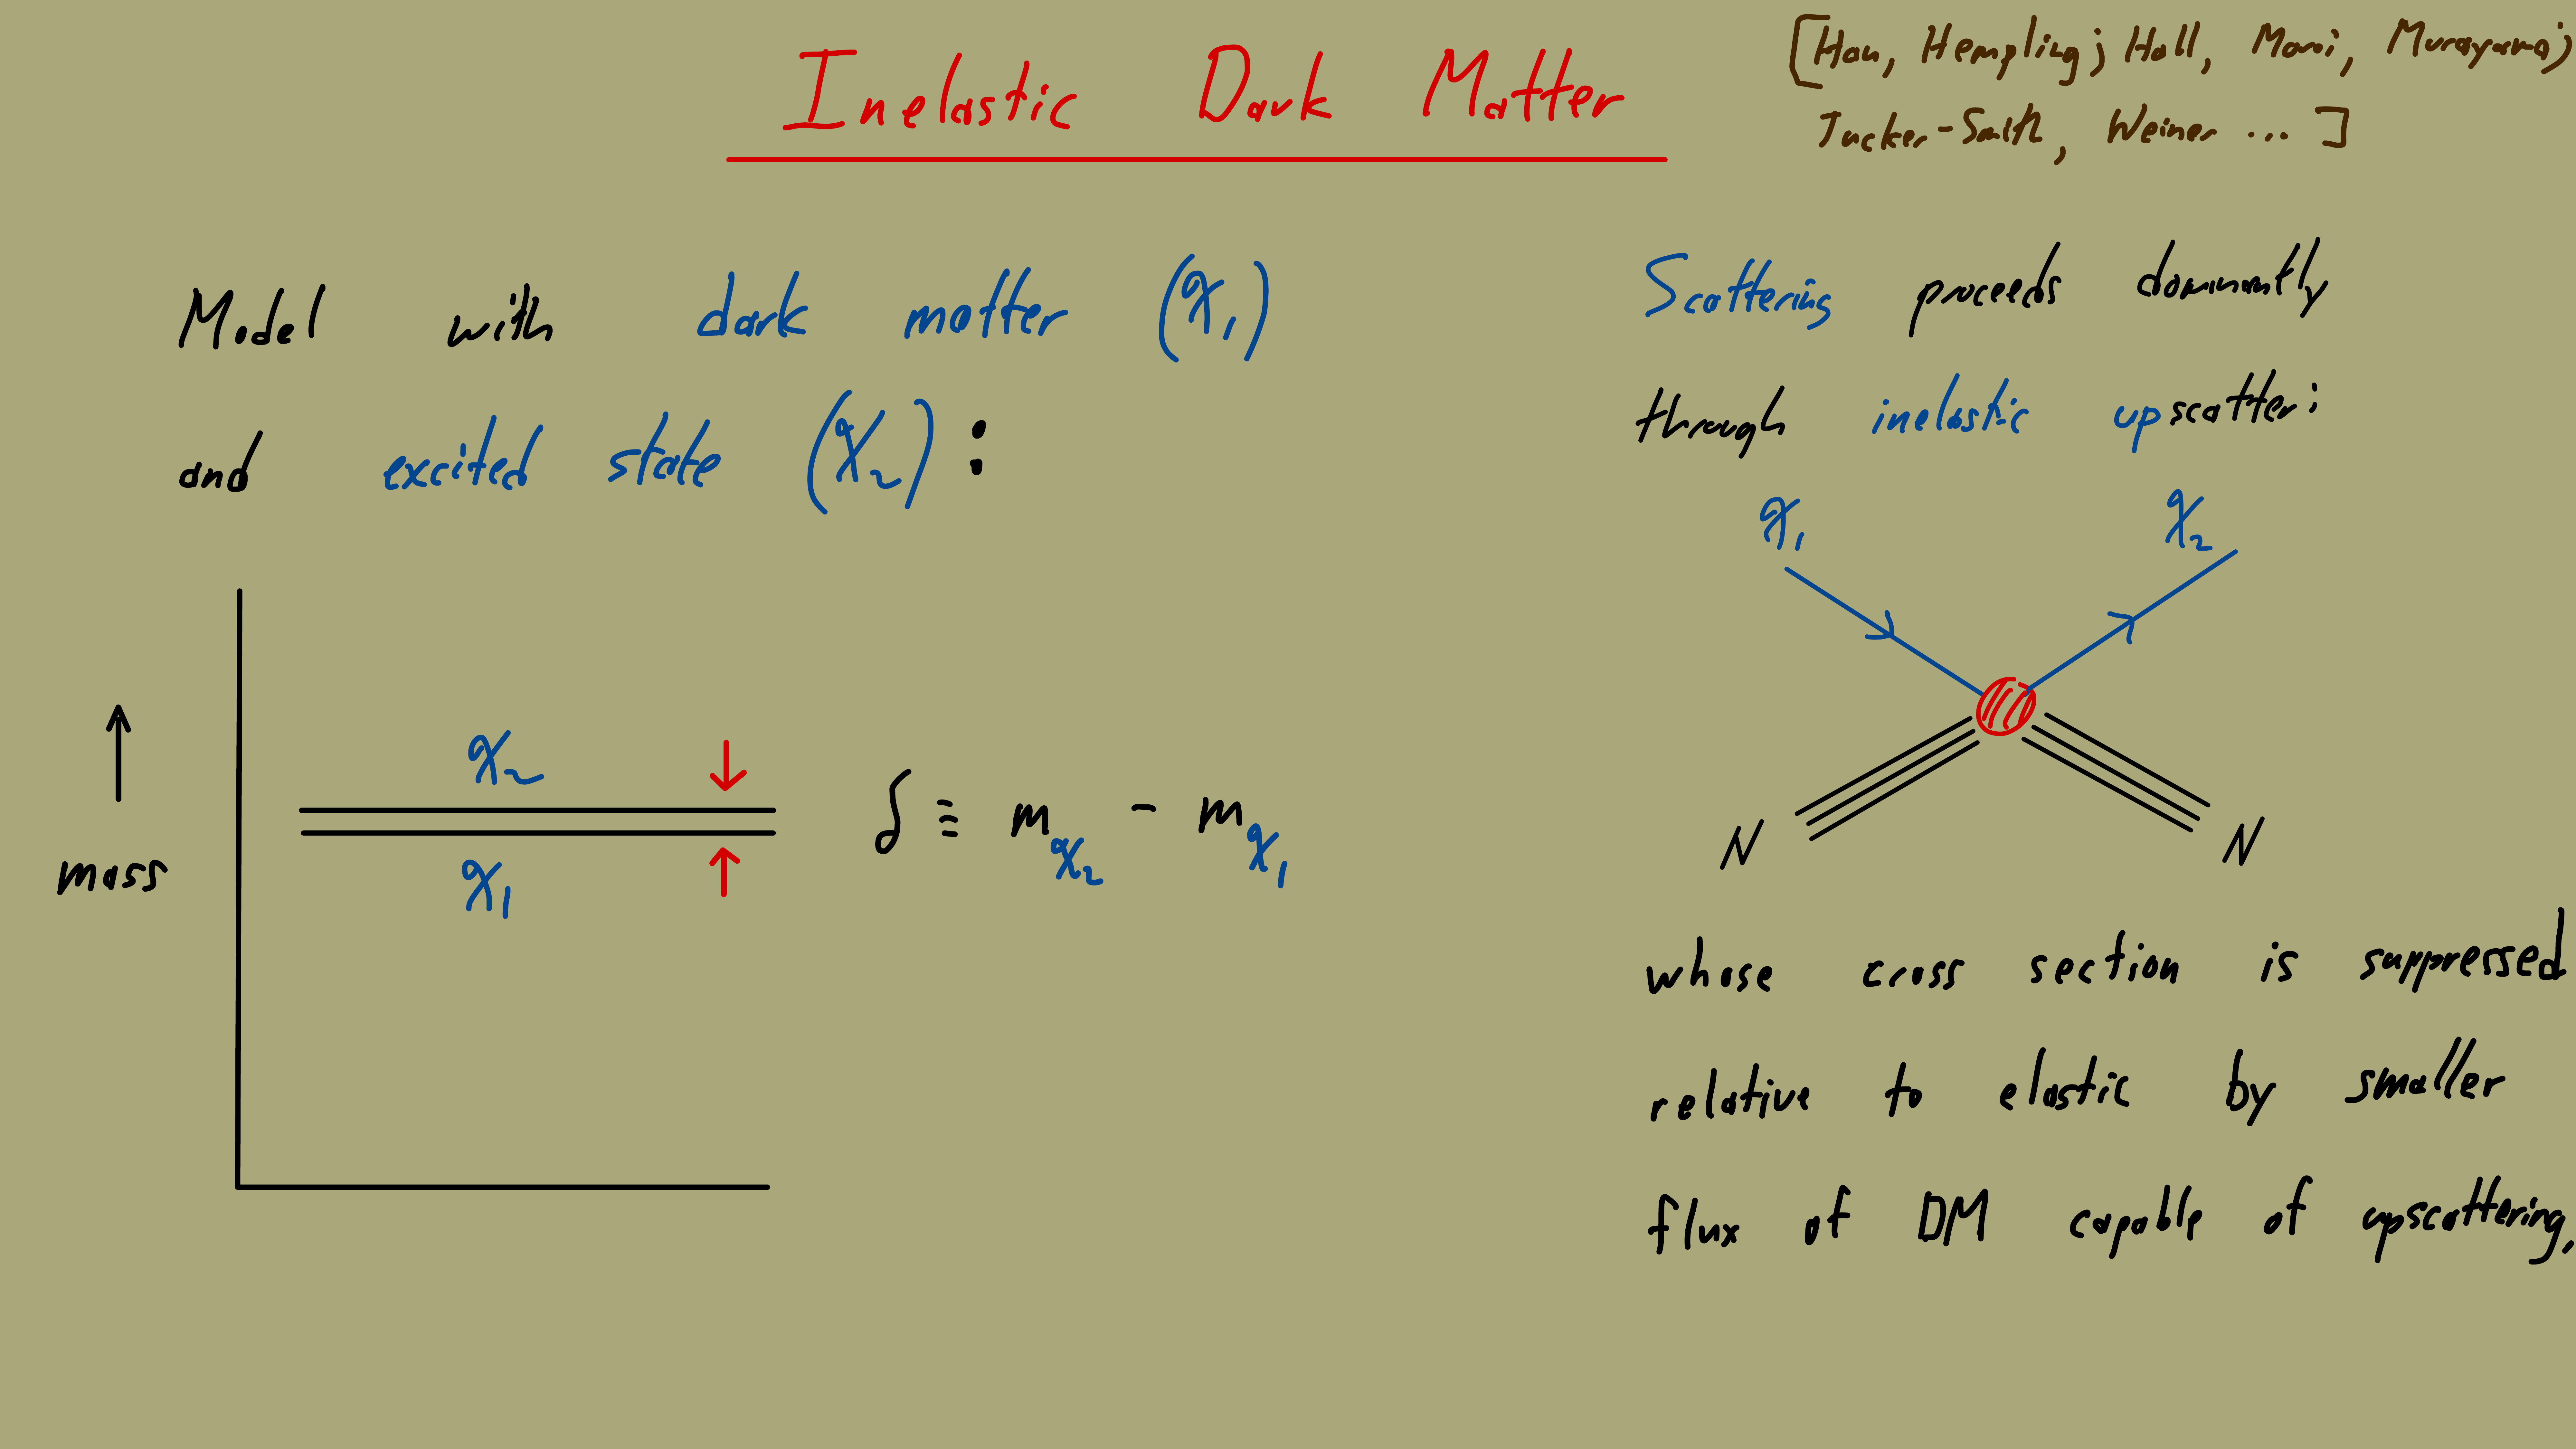 Inelastic Dark Matter
[Han, Hempling; Hall, Moroi, Murayama;
Tucker-Smith, Weiner ... ]
Model with dark matter (χ₁)
and excited state (χ₂) :
mass
χ₂
χ₁
δ ≡ m_χ₂ - m_χ₁
Scattering proceeds dominantly
through inelastic upscatter:
χ₁ χ₂
N N
whose cross section is suppressed
relative to elastic by smaller
flux of DM capable of upscattering,